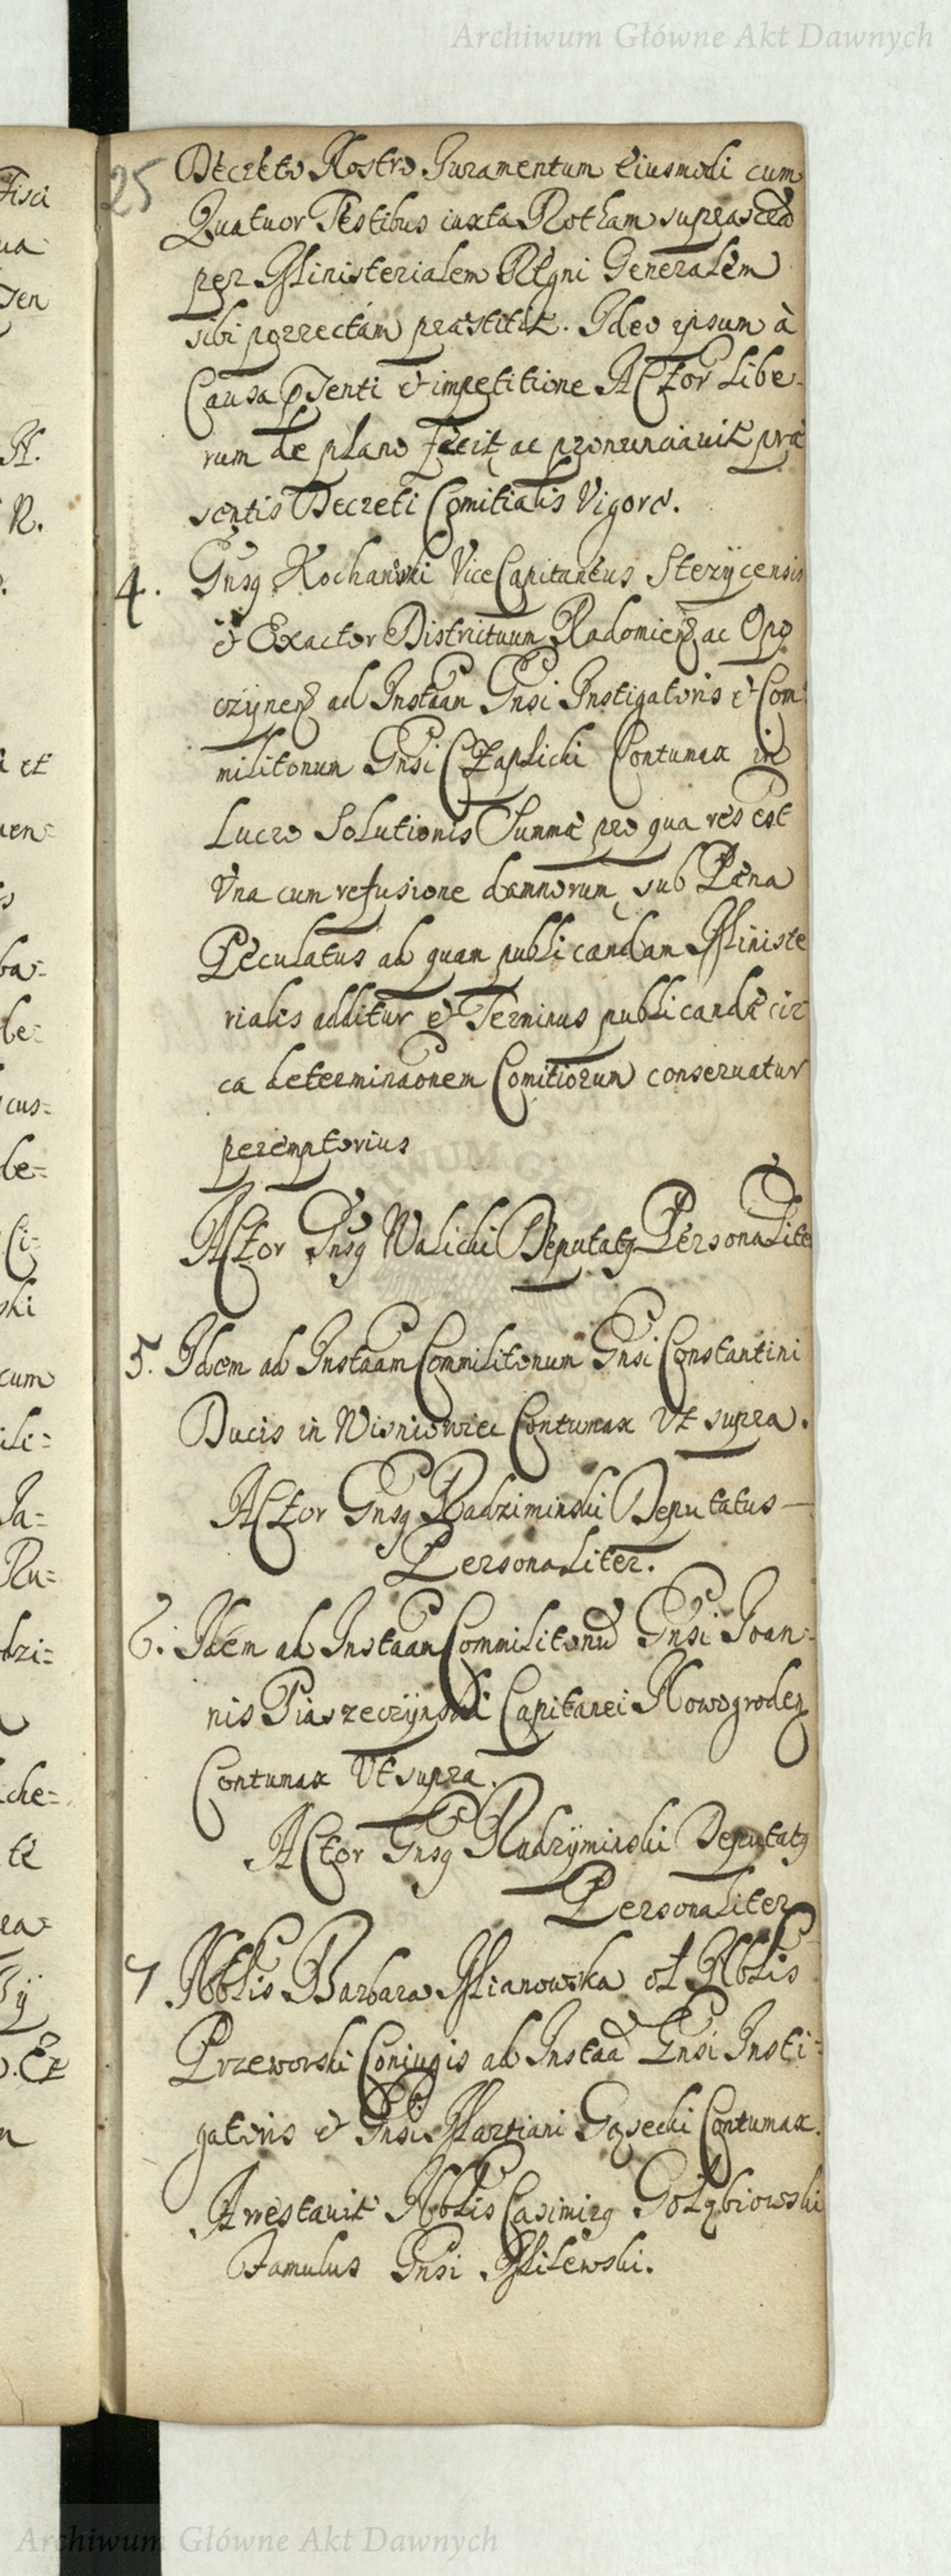 Archiwum Główne Akt Dawnych
25
Decreto Nostro Juramentum eiusmodi cum
Quatuor Testibus iuxta Rotham suprascrã
per Ministerialem Regni Generalem
sibi porrectam præstitit. Ideo ipsum à
Causa pñTenti & impetitione Actor Libe-
rum de plano fecit ac pronunciavit præ
sentis Decreti Comitialis Vigore.
4. Gnsq Kochanski ViceCapitaneus Stezÿcensis
& Exactor Districtuum Radomien ac Opo
czÿnen ad Instãan Gnsi Instigatoris & Com
militonum Gnsi CZaplicki Contumax in
Lucro Solutionis Summæ pro qua res est
Vna cum refusione damnorum sub Pæna
Peculatus ad quam publicandam Ministe
rialis additur & Terminus publicandæ cir
ca determinãonem Comitiorum conseruatur
peremptorius
Actor Gnsq Walicki Deputatq Personalite
5. Idem ad Instãam Commilitonum Gnsi Constantini
Ducis in Wisniowiec Contumax Vt supra.
Actor Gnsq Radziminski Deputatus —
Personaliter.
6. Idem ad Instãan Commilitonũ Gnsi Joan-
nis Piaszeczÿnski Capitanei Nowogroden
Contumax Vt supra.
Actor Gnsq Radzÿminski Deputatq
Personaliter
7 Nobłis Barbara Mianowska ol Nobłis
Przeworski Coniugis ad Instãã Gnsi Insti-
gatoris & Gnsi Martiani Gąsecki Contumax.
Arrestauit Nobłis Casimirq Gołąbiowski
Famulus Gnsi Milewski.
Archiwum Główne Akt Dawnych